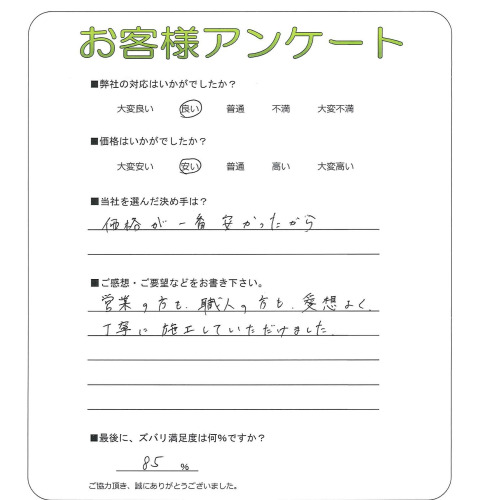 お客様アンケート
■弊社の対応はいかがでしたか？
大変良い 良い 普通 不満 大変不満
■価格はいかがでしたか？
大変安い 安い 普通 高い 大変高い
■当社を選んだ決め手は？
価格が一番安かったから
■ご感想・ご要望などをお書き下さい。
営業の方も、職人の方も、愛想よく、
丁寧に施工していただけました。
■最後に、ズバリ満足度は何%ですか？
85 %
ご協力頂き、誠にありがとうございました。